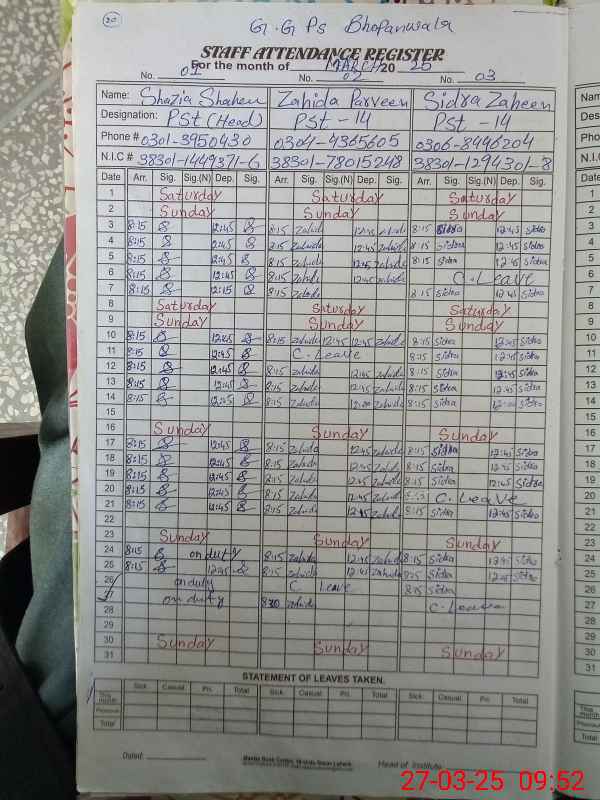 20
G.G Ps Bhopanwala
STAFF ATTENDANCE REGISTER
For the month of MARCH 20 25
No. 01 No. 02 No. 03
Name: Shazia Shaheen Zahida Parveen Sidra Zaheen
Designation: PSt (Head) PSt - 14 PSt - 14
Phone # 0301-3950430 0304-4365605 0306-8496204
N.I.C # 38301-1449371-6 38301-78015248 38301-1294301-8
Date Arr. Sig. Sig.(N) Dep. Sig. Arr. Sig. Sig.(N) Dep. Sig. Arr. Sig. Sig.(N) Dep. Sig.
1 Saturday Saturday Saturday
2 Sunday Sunday Sunday
3 8:15 12:45 8:15 Zahida 12:45 Zahida 8:15 Sidra 12:45 Sidra
4 8:15 2:45 8:15 Zahida 12:45 Zahida 8:15 Sidra 12:45 Sidra
5 8:15 12:45 8:15 Zahida 12:45 Zahida 8:15 Sidra 12:45 Sidra
6 8:15 12:45 8:15 Zahida 12:45 Zahida C. Leave
7 8:15 12:15 8:15 Zahida 8:15 Sidra 12:45 Sidra
8 Saturday Saturday Saturday
9 Sunday Sunday Sunday
10 8:15 12:45 8:15 Zahida 12:45 12:45 Zahida 8:15 Sidra 12:45 Sidra
11 8:15 12:45 C. Leave 8:15 Sidra 12:45 Sidra
12 8:15 12:45 8:15 Zahida 12:45 Zahida 8:15 Sidra 12:45 Sidra
13 8:15 12:45 8:15 Zahida 12:45 Zahida 8:15 Sidra 12:45 Sidra
14 8:15 12:45 8:15 Zahida 12:00 Zahida 8:15 Sidra Sidra
15
16 Sunday Sunday Sunday
17 8:15 12:45 8:15 Zahida 12:45 Zahida 8:15 Sidra 12:45 Sidra
18 8:15 12:45 8:15 Zahida 12:45 Zahida 8:15 Sidra 12:45 Sidra
19 8:15 12:45 8:15 Zahida 12:45 Zahida 8:15 Sidra 12:45 Sidra
20 8:15 12:45 8:15 Zahida 12:45 Zahida C. Leave
21 8:15 12:45 8:15 Zahida 12:45 Zahida 8:15 Sidra 12:45 Sidra
22
23 Sunday Sunday Sunday
24 8:15 on duty 8:15 Zahida 12:45 Zahida 8:15 Sidra 12:45 Sidra
25 8:15 12:45 8:15 Zahida 12:45 Zahida 8:15 Sidra 12:45 Sidra
26 on duty C. Leave 8:15 Sidra
27 on duty 8:30 Zahida C. Leave
28
29
30 Sunday Sunday Sunday
31
STATEMENT OF LEAVES TAKEN.
Sick. Casual. Pri. Total Sick. Casual. Pri. Total Sick. Casual. Pri. Total
This month
Previous
Total
Dated: Head of Institute
Nam
Des
Pho
N.I.
Date
1
2
3
4
5
6
7
8
9
10
11
12
13
14
15
16
17
18
19
20
21
22
23
24
25
26
27
28
29
30
31
This month
Previous
Total
27-03-25 09:52